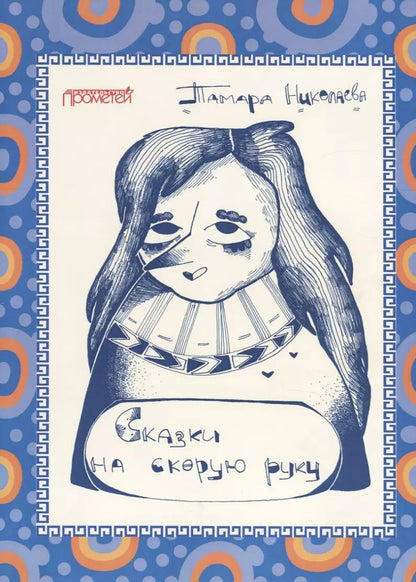 Прометей
Тамара Николаева
Сказки
на скорую руку